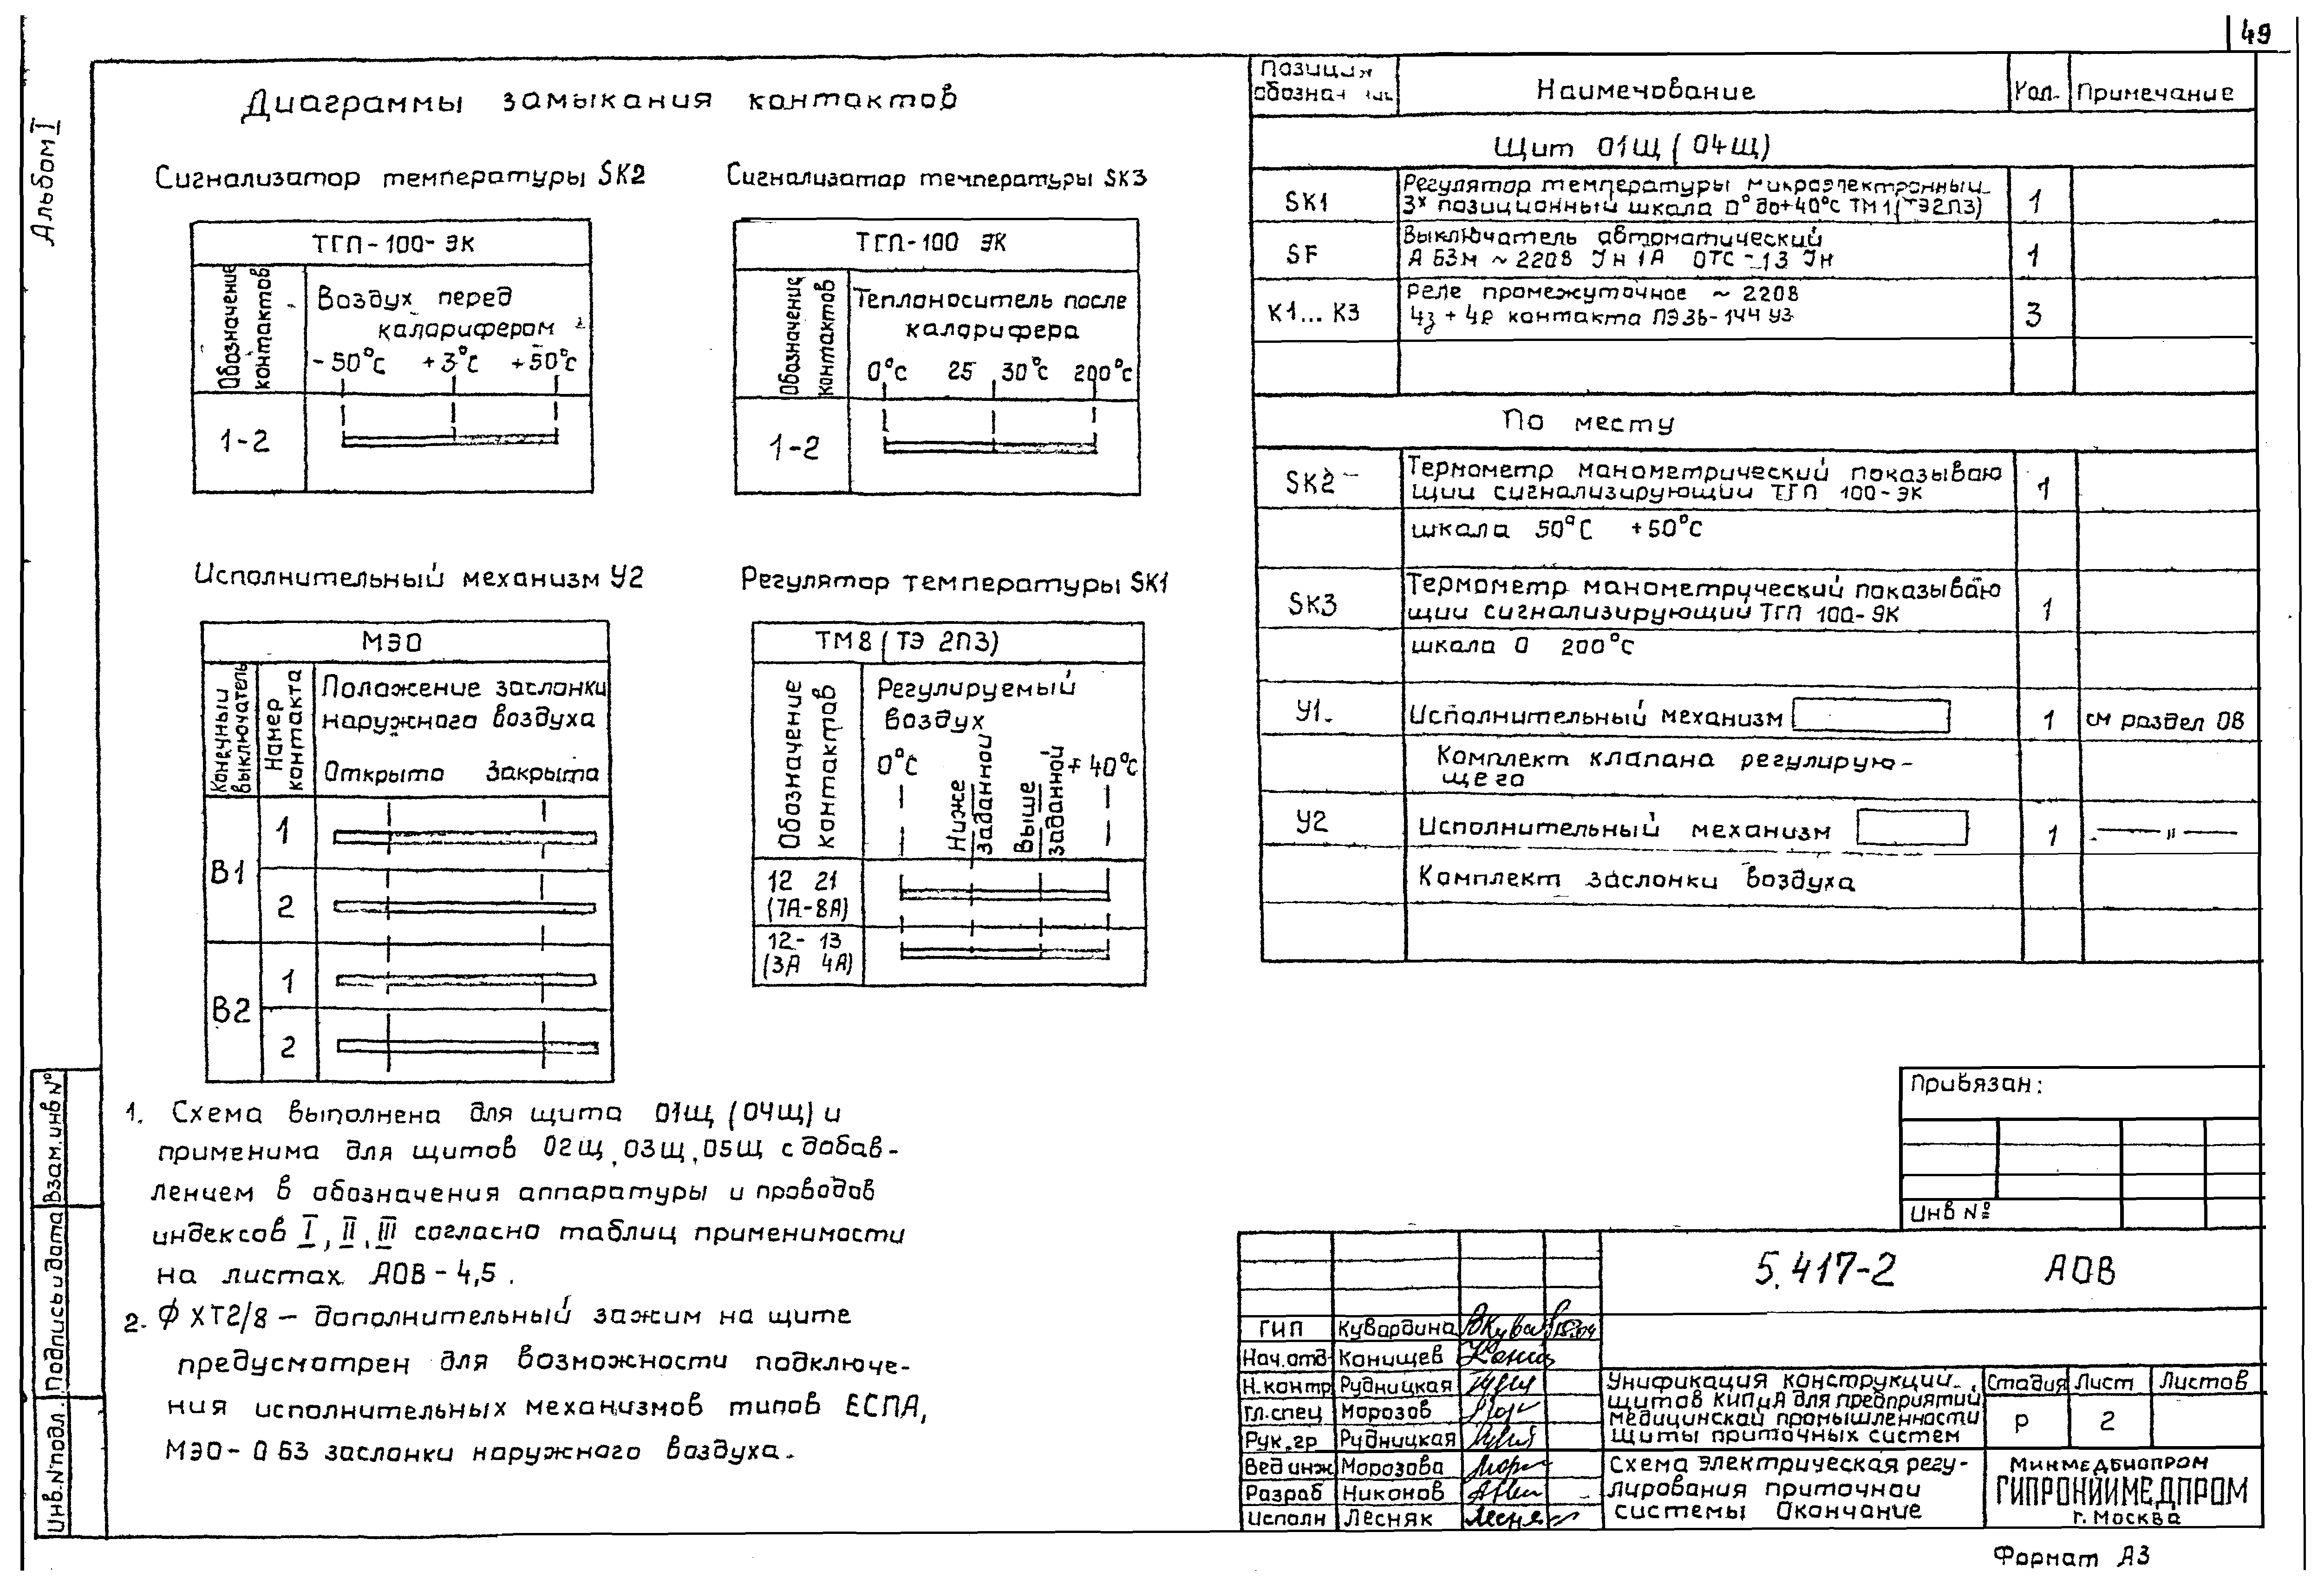 49
Альбом I
Диаграммы замыкания контактов
Сигнализатор температуры SK2
ТГП-100-ЭК
Обозначение контактов
Воздух перед
калорифером
-50°С +3°С +50°С
1-2
Сигнализатор температуры SK3
ТГП-100 ЭК
Обозначение контактов
Теплоноситель после
калорифера
0°С 25 30°С 200°С
1-2
Исполнительный механизм У2
МЭО
Конечный выключатель
Номер контакта
Положение заслонки
наружного воздуха
Открыто Закрыто
В1
1
2
В2
1
2
Регулятор температуры SK1
ТМ8 (ТЭ 2П3)
Обозначение контактов
Регулируемый
воздух
0°С
Ниже заданной
Выше заданной
+40°С
12 21
(7А-8А)
12-13
(3А 4А)
1. Схема выполнена для щита 01Щ (04Щ) и
применима для щитов 02Щ, 03Щ, 05Щ с добав-
лением в обозначения аппаратуры и проводов
индексов I, II, III согласно таблиц применимости
на листах АОВ-4,5.
2. ф ХТ2/8 – дополнительный зажим на щите
предусмотрен для возможности подключе-
ния исполнительных механизмов типов ЕСПА,
МЭО-0 63 заслонки наружного воздуха.
Наименование Кол. Примечание
Щит 01Щ (04Щ)
SK1 Регулятор температуры микроэлектронный
3х позиционный шкала 0° до +40°С ТМ1(ТЭ2П3) 1
SF Выключатель автоматический
А 63м ~ 220В Jн 1А ОТС-13 Jн 1
К1...К3 Реле промежуточное ~ 220В
4з + 4р контакта ПЭ36-144 У3 3
По месту
SK2 Термометр манометрический показываю
щий сигнализирующий ТГП 100-ЭК 1
шкала 50°С +50°С
SK3 Термометр манометрический показываю
щий сигнализирующий ТГП 100-ЭК 1
шкала 0 200°С
У1. Исполнительный механизм 1 см раздел ОВ
Комплект клапана регулирую-
щего
У2 Исполнительный механизм 1 — " —
Комплект заслонки воздуха
Привязан:
Инв №
5.417-2 АОВ
ГИП Кувардина
Нач.отд Конищев
Н.контр Рудницкая
Гл.спец Морозов
Рук.гр Рудницкая
Вед инж Морозова
Разраб Никонов
Исполн Лесняк
Унификация конструкций
щитов КИПиА для предприятий
медицинской промышленности
Щиты приточных систем
Стадия Лист Листов
Р 2
Схема электрическая регу-
лирования приточной
системы Окончание
Минмедбиопром
ГИПРОНИИМЕДПРОМ
г. Москва
Формат А3
Взам.инв№
Подпись и дата
Инв.№подл.